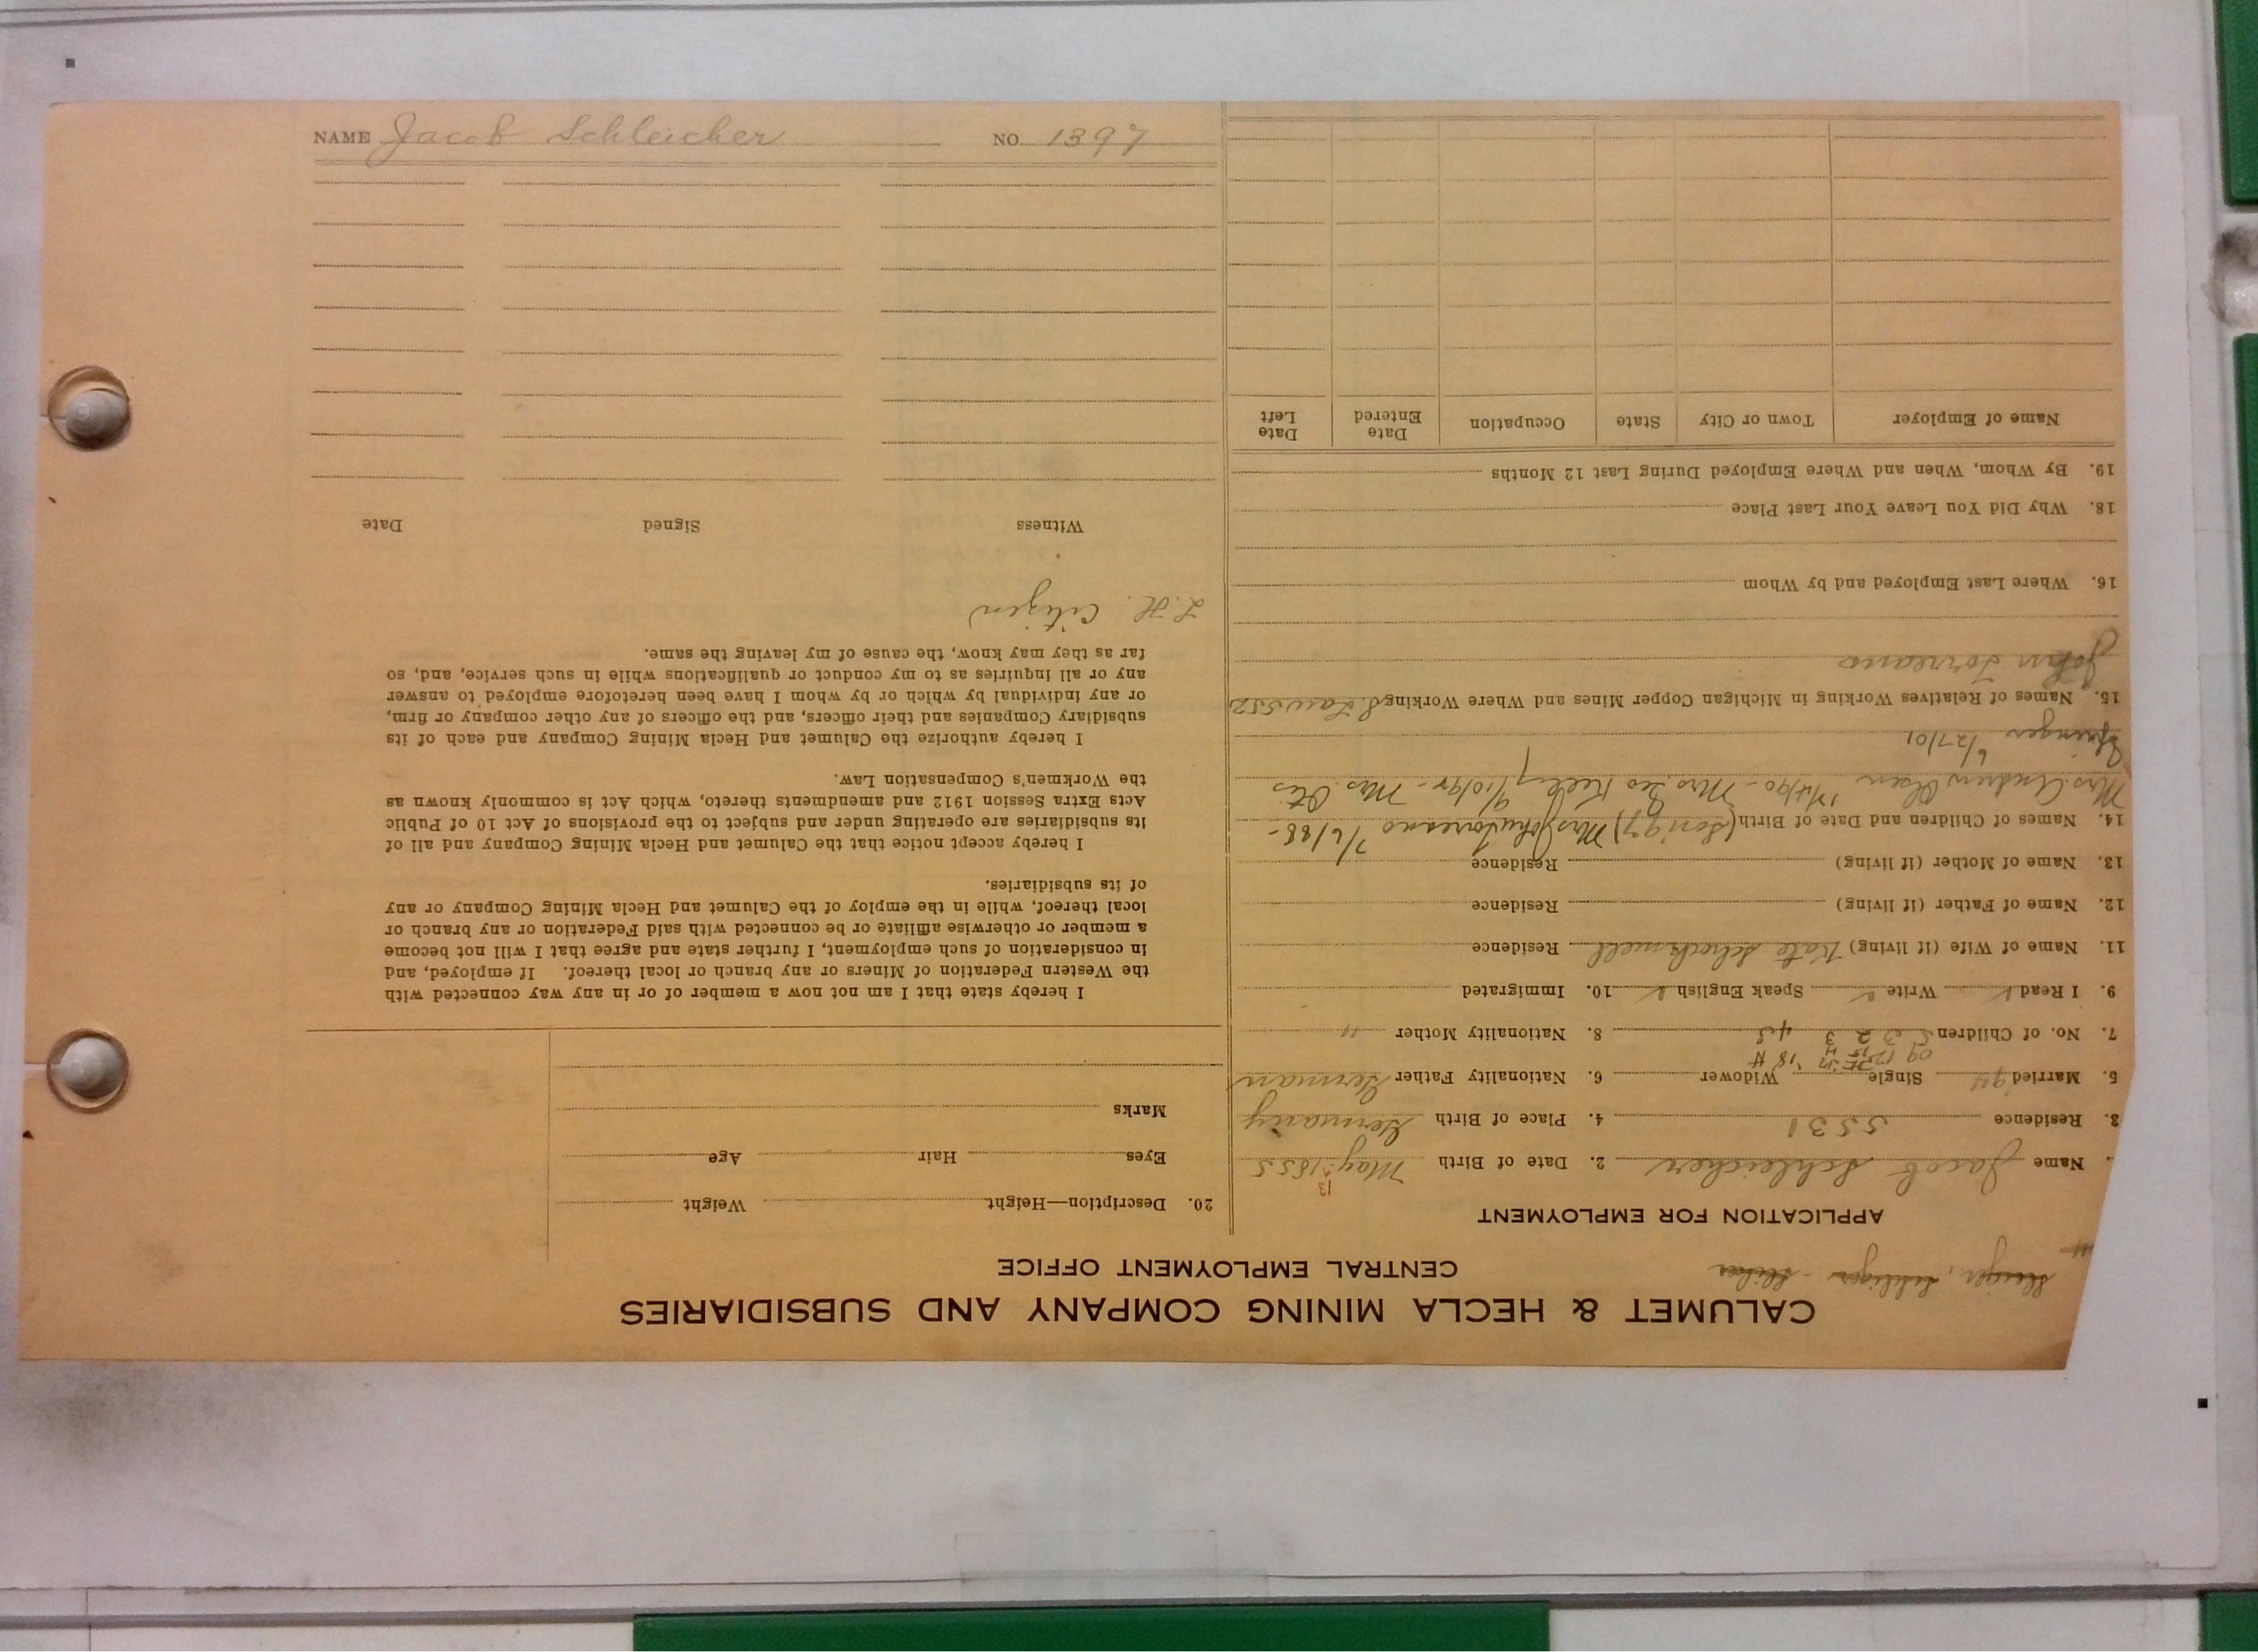 CALUMET & HECLA MINING COMPANY AND SUBSIDIARIES
CENTRAL EMPLOYMENT OFFICE
APPLICATION FOR EMPLOYMENT
Name Jacob Schleicher 2. Date of Birth May 13 1855
3. Residence 5531 4. Place of Birth Germany
5. Married 94 Single Widower 6. Nationality Father German
09 12 '18
7. No. of Children 8. Nationality Mother "
9. I Read Write Speak English 10. Immigrated
11. Name of Wife (if living) Kate Residence
12. Name of Father (if living) Residence
13. Name of Mother (if living) Residence
14. Names of Children and Date of Birth (Son 97) Mrs John Toreano 7/6/88 -
Mrs. Andrew Olsen - Mrs. Geo Kelly 9/10/95 - Mrs. Otis
Springer 6/27/01
15. Names of Relatives Working in Michigan Copper Mines and Where Working
John Torreano
16. Where Last Employed and by Whom
18. Why Did You Leave Your Last Place
19. By Whom, When and Where Employed During Last 12 Months
Name of Employer Town or City State Occupation Date Entered Date Left
20. Description—Height Weight
Eyes Hair Age
Marks
I hereby state that I am not now a member of or in any way connected with
the Western Federation of Miners or any branch or local thereof. If employed, and
in consideration of such employment, I further state and agree that I will not become
a member or otherwise affiliate or be connected with said Federation or any branch or
local thereof, while in the employ of the Calumet and Hecla Mining Company or any
of its subsidiaries.
I hereby accept notice that the Calumet and Hecla Mining Company and all of
its subsidiaries are operating under and subject to the provisions of Act 10 of Public
Acts Extra Session 1912 and amendments thereto, which Act is commonly known as
the Workmen's Compensation Law.
I hereby authorize the Calumet and Hecla Mining Company and each of its
subsidiary Companies and their officers, and the officers of any other company or firm,
or any individual by which or by whom I have been heretofore employed to answer
any or all inquiries as to my conduct or qualifications while in such service, and, so
far as they may know, the cause of my leaving the same.
L.H. Citizen
Witness Signed Date
NAME Jacob Schleicher NO. 1397